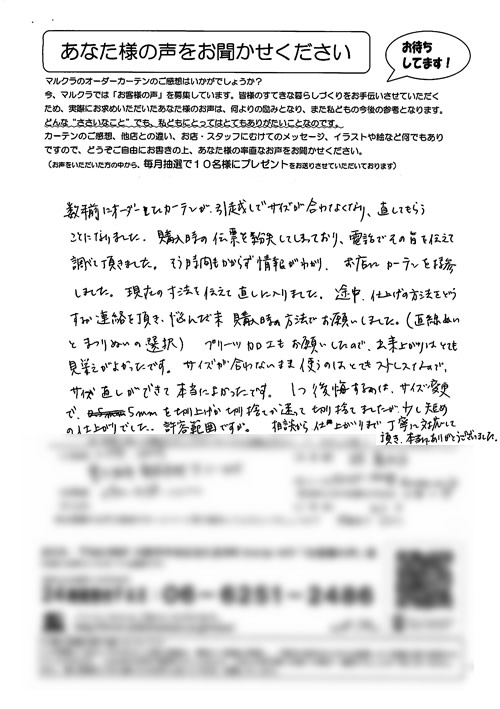 あなた様の声をお聞かせください
お待ち
してます！
マルクラのオーダーカーテンのご感想はいかがでしょうか？
今、マルクラでは「お客様の声」を募集しています。皆様のすてきな暮らしづくりをお手伝いさせていただく
ため、実際にお求めいただいたあなた様のお声は、何よりの励みとなり、また私どもの今後の参考となります。
どんな "ささいなこと" でも、私どもにとってはとてもありがたいことなのです。
カーテンのご感想、他店との違い、お店・スタッフにむけてのメッセージ、イラストや絵など何でもあり
ですので、どうぞご自由にお書きの上、あなた様の率直なお声をお聞かせください。
（お声をいただいた方の中から、毎月抽選で１０名様にプレゼントをお送りさせていただいております）
数年前にオーダーしたカーテンが、引越しでサイズが合わなくなり、直してもらう
ことになりました。購入時の伝票を紛失してしまっており、電話でその旨を伝えて
調べて頂きました。そう時間もかからず情報がわかり、お店にカーテンを持参
しました。現在の寸法を伝えて直しに入りました。途中、仕上げの方法をどう
するか連絡を頂き、悩んだ末 購入時の方法でお願いしました。（直線ぬい
とまつりぬいの選択） プリーツ加工もお願いしたので、出来上がりはとても
見栄えがよかったです。サイズが合わないまま使うのはとてもストレスなので、
サイズ直しができて本当によかったです。1つ後悔するのは、サイズ変更
で、5mmを切り上げか切り捨てか迷って切り捨てましたが、少し短め
の仕上がりでした。許容範囲ですが。相談から仕上がりまで丁寧に対応して
頂き、本当にありがとうございました。
06-6251-2486